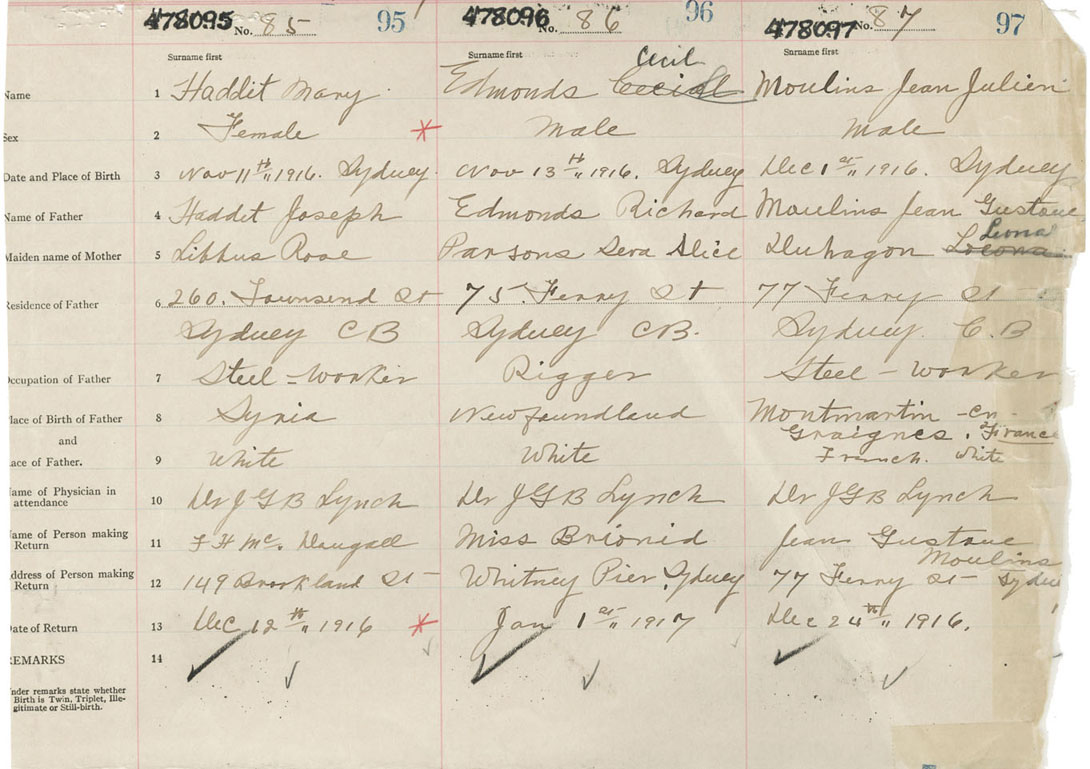 478095 No. 85 95 478096 No. 86 96 478097 No. 87 97
Surname first Surname first Surname first
Cecil
Name 1 Haddit Mary Edmonds Moulins Jean Julien
Sex 2 Female * Male Male
Date and Place of Birth 3 Nov 11th 1916. Sydney. Nov 13th 1916. Sydney Dec 1st 1916. Sydney
Name of Father 4 Haddit Joseph Edmonds Richard Moulins Jean Gustave
Leona
Maiden name of Mother 5 Libbus Rose Parsons Alice
Residence of Father 6 260. Townsend St 75. Ferry St 77 Ferry St
Sydney CB Sydney CB. Sydney. C.B
Occupation of Father 7 Steel-worker Rigger Steel-worker
Place of Birth of Father 8 Syria Newfoundland Montmartin-en-
and Graignes. France
ace of Father. 9 White White French. White
Name of Physician in
attendance 10 Dr JGB Lynch Dr JGB Lynch Dr JGB Lynch
Name of Person making
Return 11 F H Mc. Dougall Miss Jean Gustave
Moulins
Address of Person making
Return 12 149 Brookland St Whitney Pier, Sydney 77 Ferry St
Date of Return 13 Dec 12th 1916 * Jan 1st 1917 Dec 24th 1916.
REMARKS 14
Under remarks state whether
Birth is Twin, Triplet, Ille-
gitimate or Still-birth.